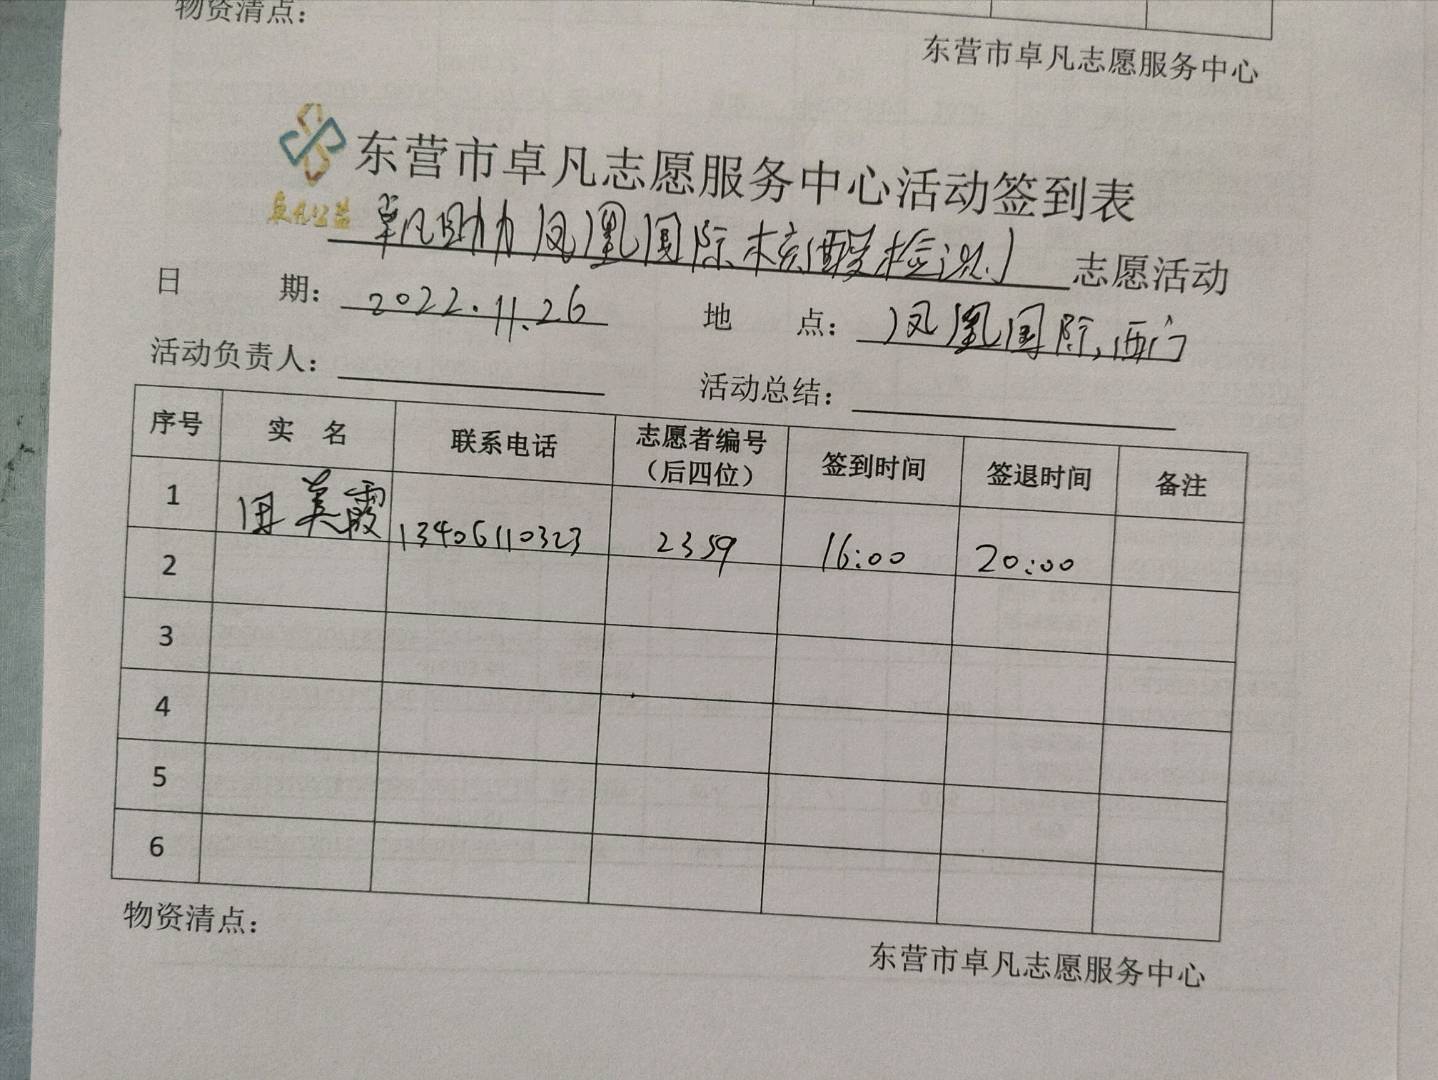 物资清点：
东营市卓凡志愿服务中心
东营市卓凡志愿服务中心活动签到表
卓凡公益
卓凡助力凤凰国际核酸检测 志愿活动
日 期： 2022.11.26 地 点： 凤凰国际，西门
活动负责人： 活动总结：
序号 实 名 联系电话 志愿者编号（后四位） 签到时间 签退时间 备注
1 美霞 13406110323 2359 16:00 20:00
2
3
4
5
6
物资清点：
东营市卓凡志愿服务中心